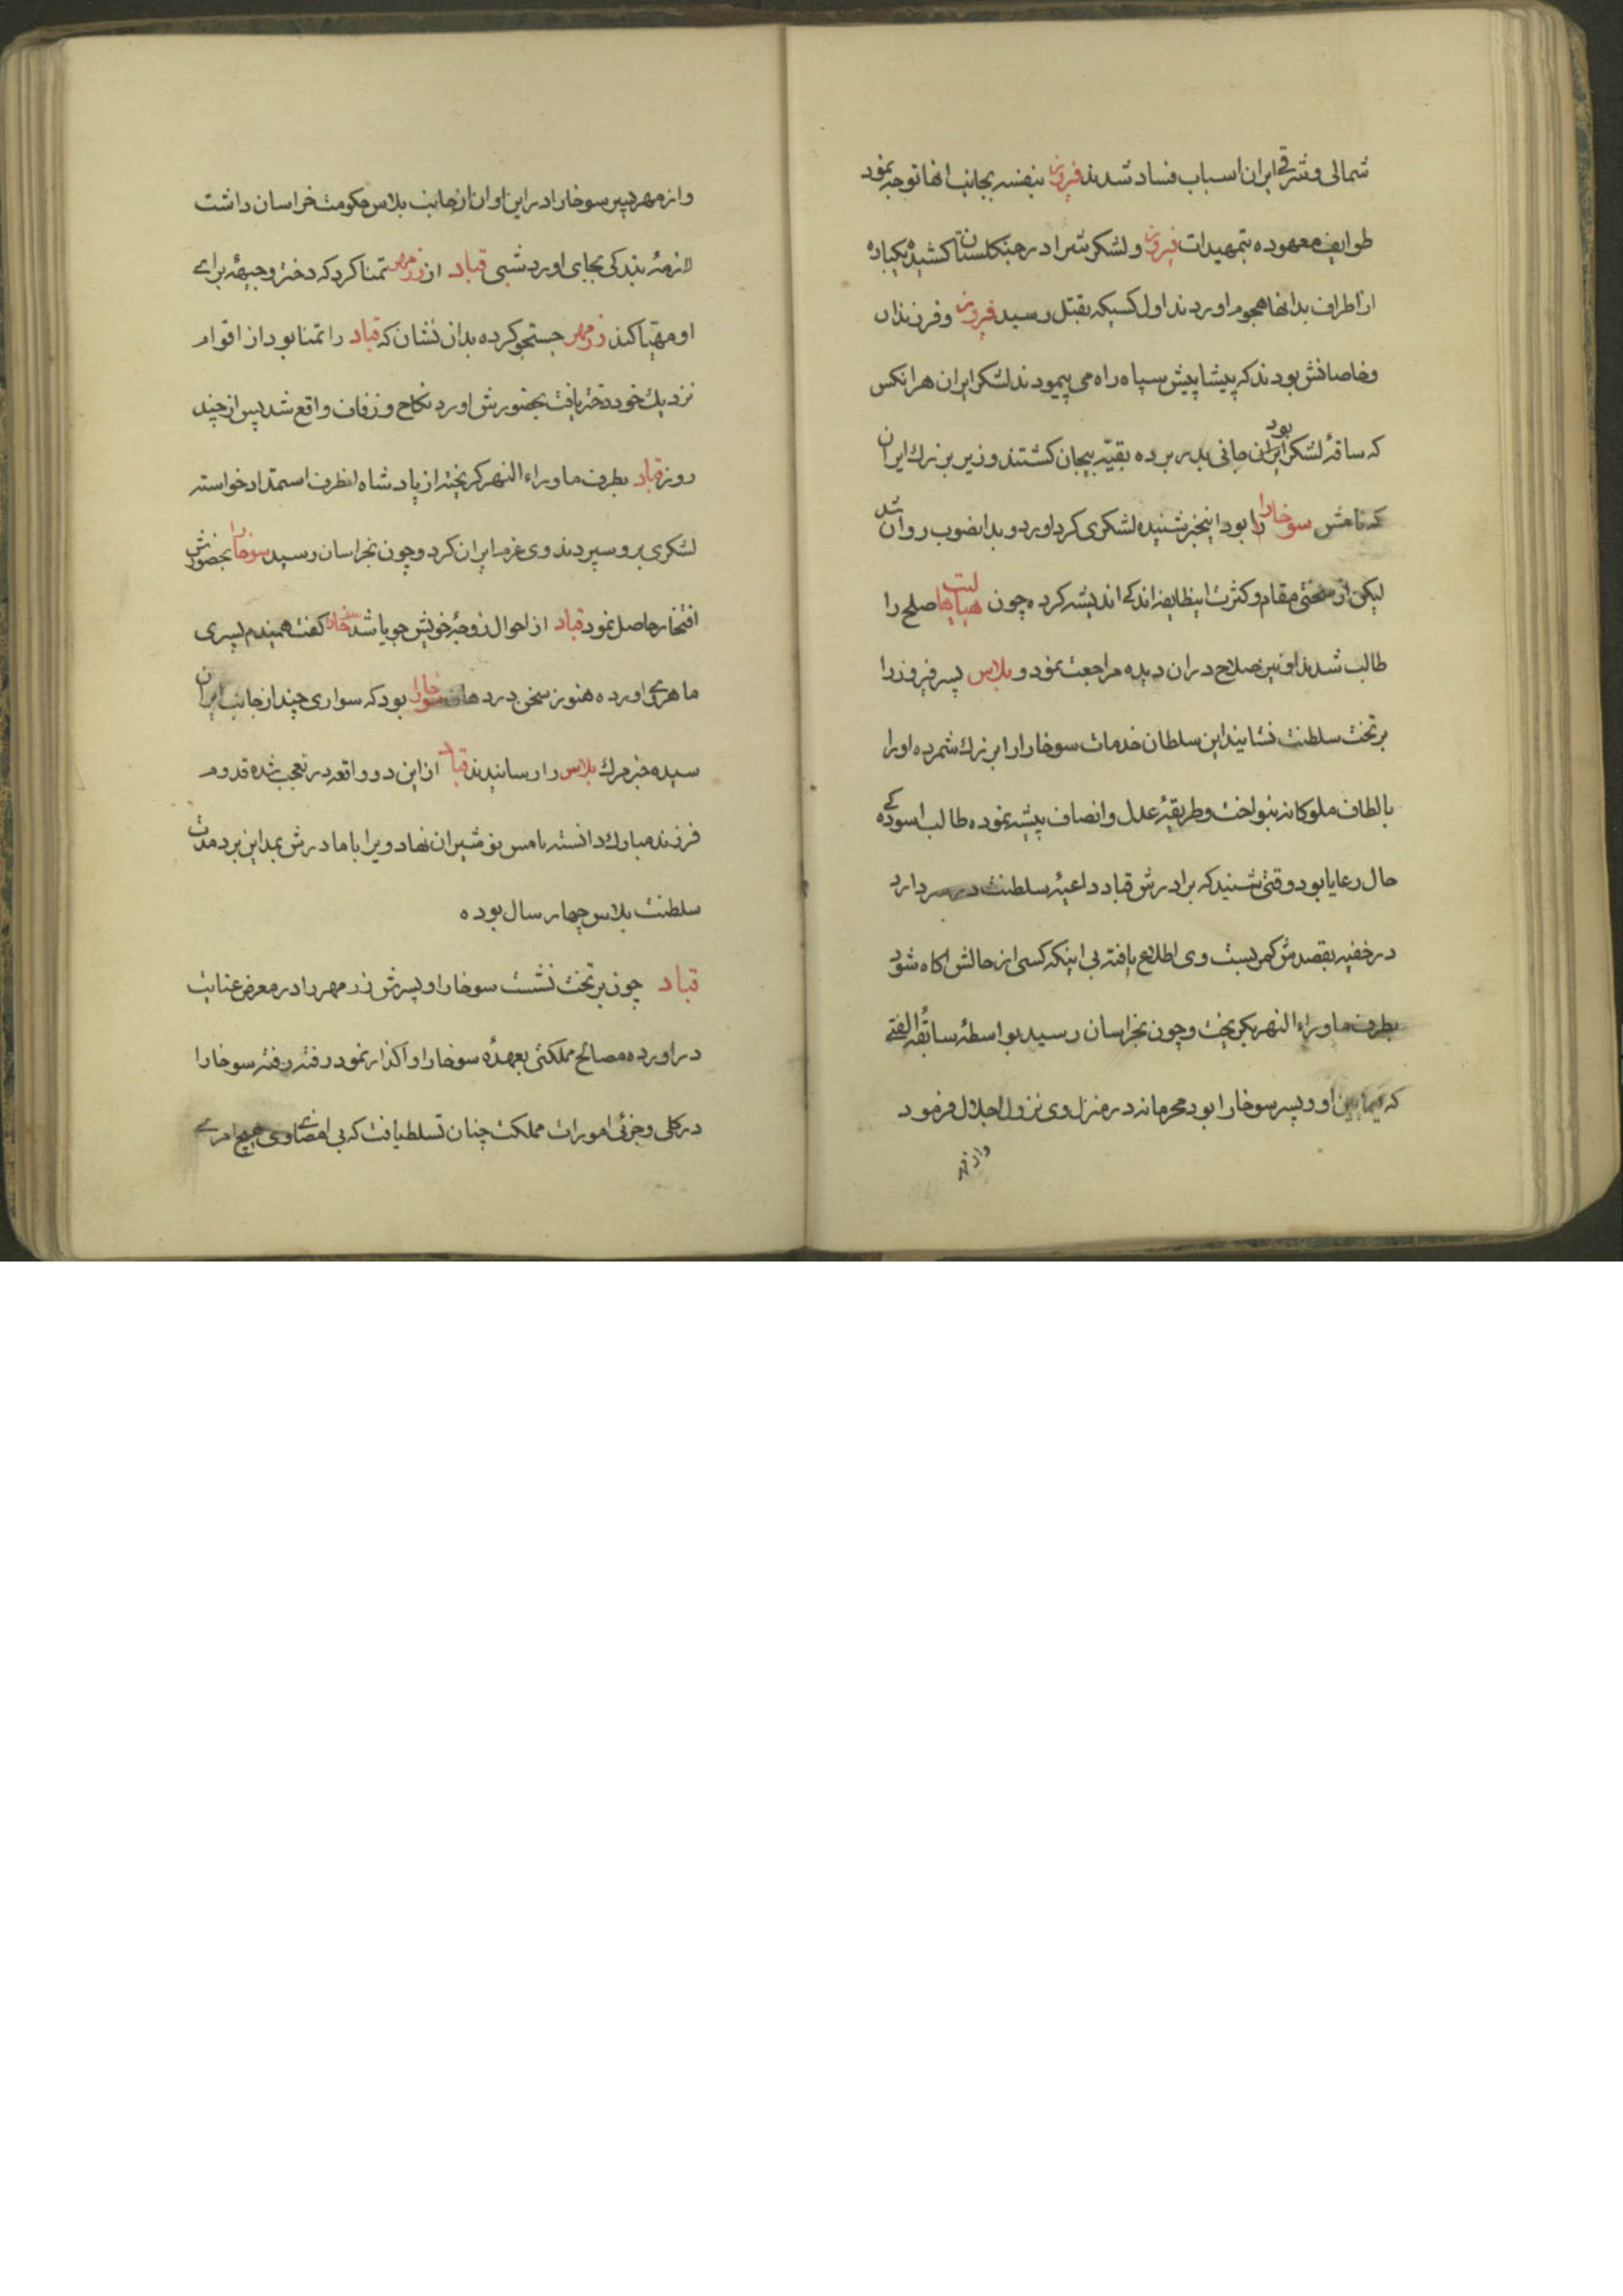 شمالی و شرقی ایران اسباب فساد شدند فیروز بنفسه بجانب انها توجه نمود
طوایف معهوده بتمهیدات فیروز و لشکرش را در جنکلستان کشیده یکباره
از اطراف بدانها هجوم اوردند اول کسیکه بقتل رسید فیروز و فرزندان
و خاصانش بودند که پیشاپیش سپاه راه می پیمودند لشکر ایران هر انکس
که ساقهٔ لشکر ایران بود جانی بدر برده بقیّه بیجان کشتند وزیر بزرك ایران
که نامش سوخارا را بود اینخبر شنیده لشکری کرد اورد و بدانصوب روان شد
لیکن از سختی مقام و کثرت اینطایفه اندکی اندیشه کرده چون هیاها لیت صلح را
طالب شدند او نیز صلاح در ان دیده مراجعت نمود و بلاس پسر فیروز را
بر تخت سلطنت نشانید این سلطان خدمات سوخارا را بزرك شمرده او را
بالطاف ملوکانه بنواخت و طریقهٔ عدل و انصاف پیشه نموده طالب اسوده کی
حال رعایا بود وقتی شنید که برادرش قباد داعیهٔ سلطنت در سر دارد
در خفیه بقصدش کمر بست وی اطلاع یافته بی اینکه کسی از حالش اکاه شود
بطرف ماوراء النهر بکریخت و چون بخراسان رسید بواسطهٔ سابقهٔ الفتی
که فیمابین او و پسر سوخارا بود محرمانه در منزل وی نزول اجلال فرمود
وازمهر
وازمهر پسر سوخارا در این اوان از جانب بلاس حکومت خراسان داشت
لازمهٔ بندکی بجای اورد شبی قباد از زرمهر تمنا کرد که دختر وجیههٔ برای
او مهیّا کند زرمهر جستجو کرده بدان نشان که قباد را تمنا بود از اقوام
نزدیك خود دختر یافت بحضورش اورد نکاح و زفاف واقع شد پس از چند
روز قباد بطرف ماوراء النهر کریخته از پادشاه انطرف استمداد خواسته
لشکری برو سپردند وی عزم ایران کرد و چون بخراسان رسید سوخرا بحضورش
افتخار حاصل نمود قباد از احوال زوجهٔ خویش جویا شد سوخارا کفت همیندم پسری
ماهری اورده هنوز سخن در دهان سوخارا بود که سواری چند از جانب ایران
سیده خبر مرك بلاس را رسانیدند قباد از این دو واقعه در تعجب شده قدوم
فرزند مبارك دانسته نامس نوشیران نهاد ویرا با مادرش بمداین برد مدت
سلطنت بلاس چهار سال بوده
قباد چون بر تخت نشست سوخارا و پسرش زرمهر را در معرض عنایت
در اورده مصالح مملکتی بعهدهٔ سوخارا واکذار نمود رفته رفته سوخارا
در کلی و جزئی امورات مملکت چنان تسلط یافت که بی امضای وی هیچ امری